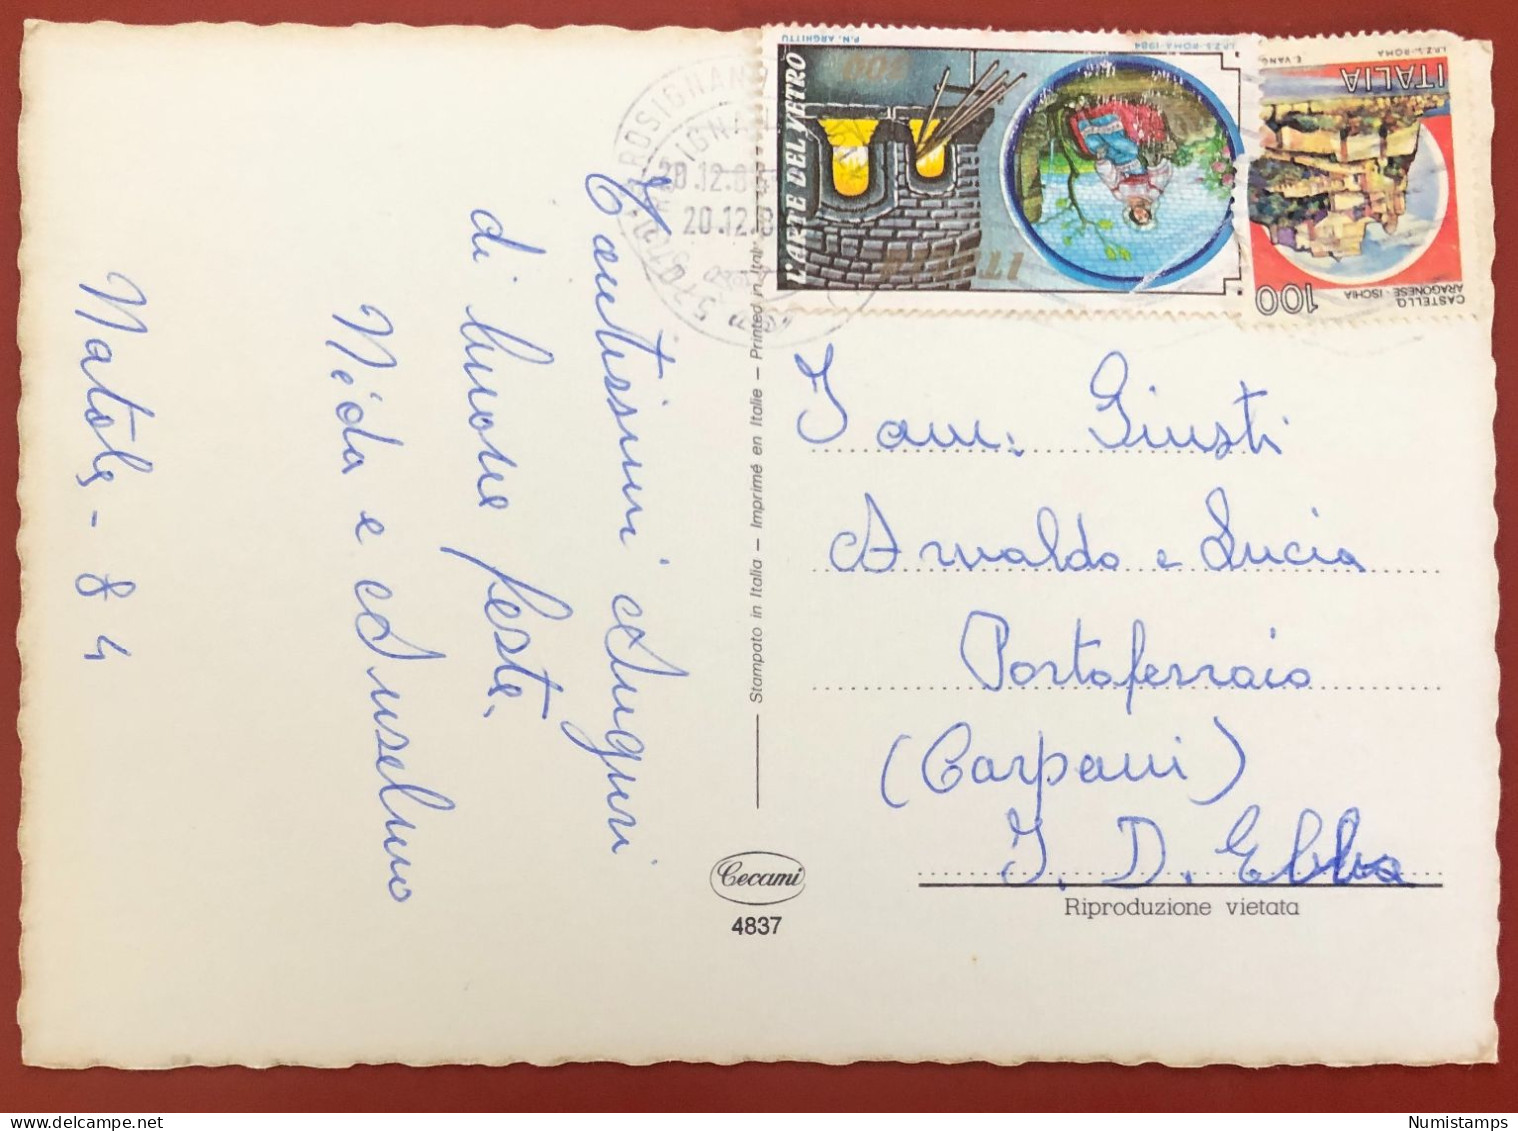 Natale - 84
Néda e Anselmo
di buone feste.
Tantissimi Auguri
Stampato in Italia — Imprimé en Italie — Printed in Italy
Cecami
4837
20.12.8
20.12.8
L'ARTE DEL VETRO
ITALIA
P.N. ARGHITTU
I.P.Z.S.-ROMA-1984
I.P.Z.S.-ROMA
ITALIA
100
CASTELLO
ARAGONESE - ISCHIA
Fam. Giusti
Arnaldo e Lucia
Portoferraio
(Carpani)
I. D. Elba
Riproduzione vietata
Numistamps.com